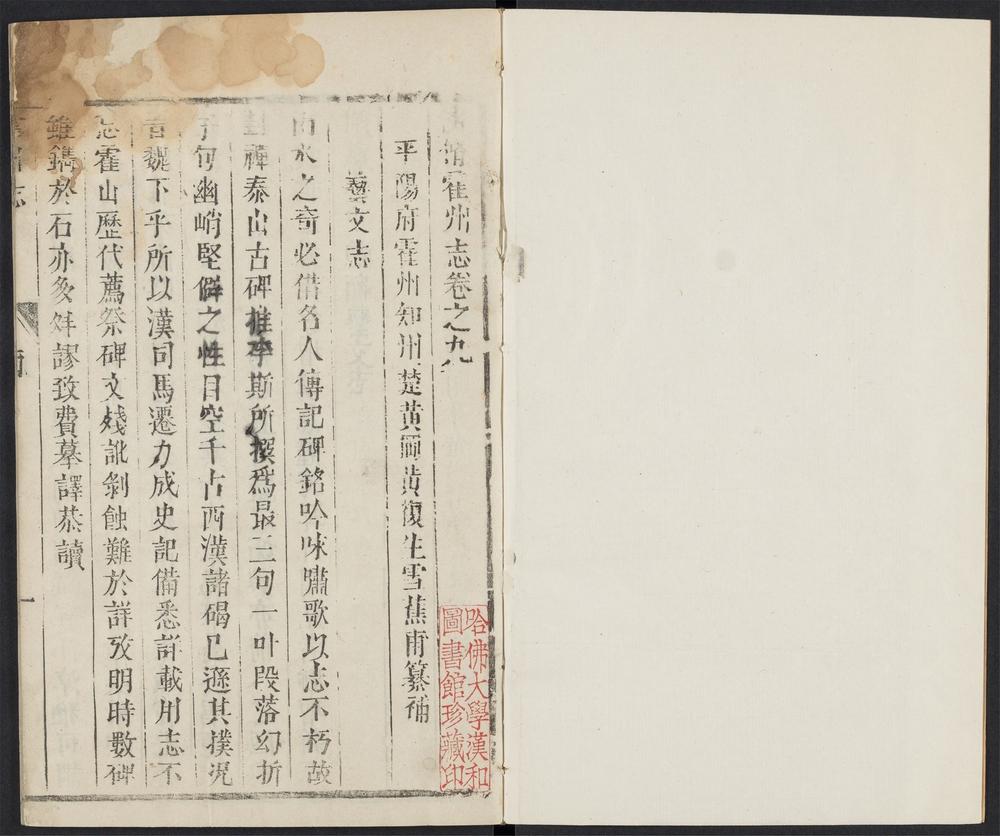 霍州志卷之九
平陽府霍州知州楚黃岡黃復生雪蕉甫纂補
藝文志
山水之奇必借名人傳記碑銘吟咏嘯歌以志不朽故
禪泰山古碑惟李斯所撰爲最三句一叶段落幻折
字句幽峭堅僻之性目空千古西漢諸碣已遜其撲况
魏下乎所以漢司馬遷力成史記備悉詳載用志不
忘霍山歷代薦祭碑文殘訛剝蝕難於詳攷明時數碑
雖鐫於石亦多舛謬致費摹譯恭讀
志
一
哈佛大學漢和
圖書館珍藏印